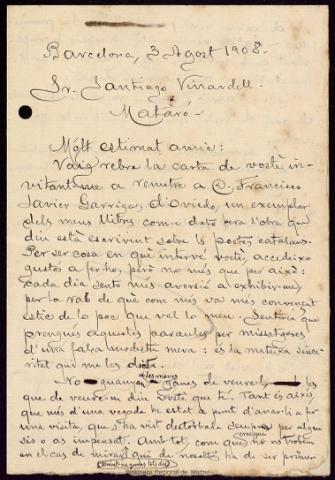 Barcelona, 3 Agost 1908.
Sr. Santiago Vinardell.
Mataró-
Mólt estimat amic:
Vaig rebre la carta de vostè in-
vitantme a remetre a D. Francisco
Javier Garriga, d'Oviedo, un exemplar
dels meus llibres com a dato pera l'obra que
diu està escrivint sobre ls poetes catalans.
Per ser cosa en què intervé vostè, accedeixo
gustós a ferho, però no més que per això:
cada dia sento més aversió a exhibir-me,
per la raó de què com més va més convençut
estic de lo poc que val lo meu. Sentiria que
prengués aquestes paraules per missatgeres
d'una falsa modestia meva: és la mateixa since-
ritat qui me les dicta.
No guanyen a les meves ganes de veure'l les
que de veure-m diu vostè que té. Tant és així,
que més d'una vegada he estat a punt d'anar-li a fer
una visita, que s'ha vist destorbada sempre per algun
sis o as impensat. Ambtot, com que no ns trobem
en el cas de mirar qui de nosaltres ha de ser primer
Biblioteca Regional de Madrid